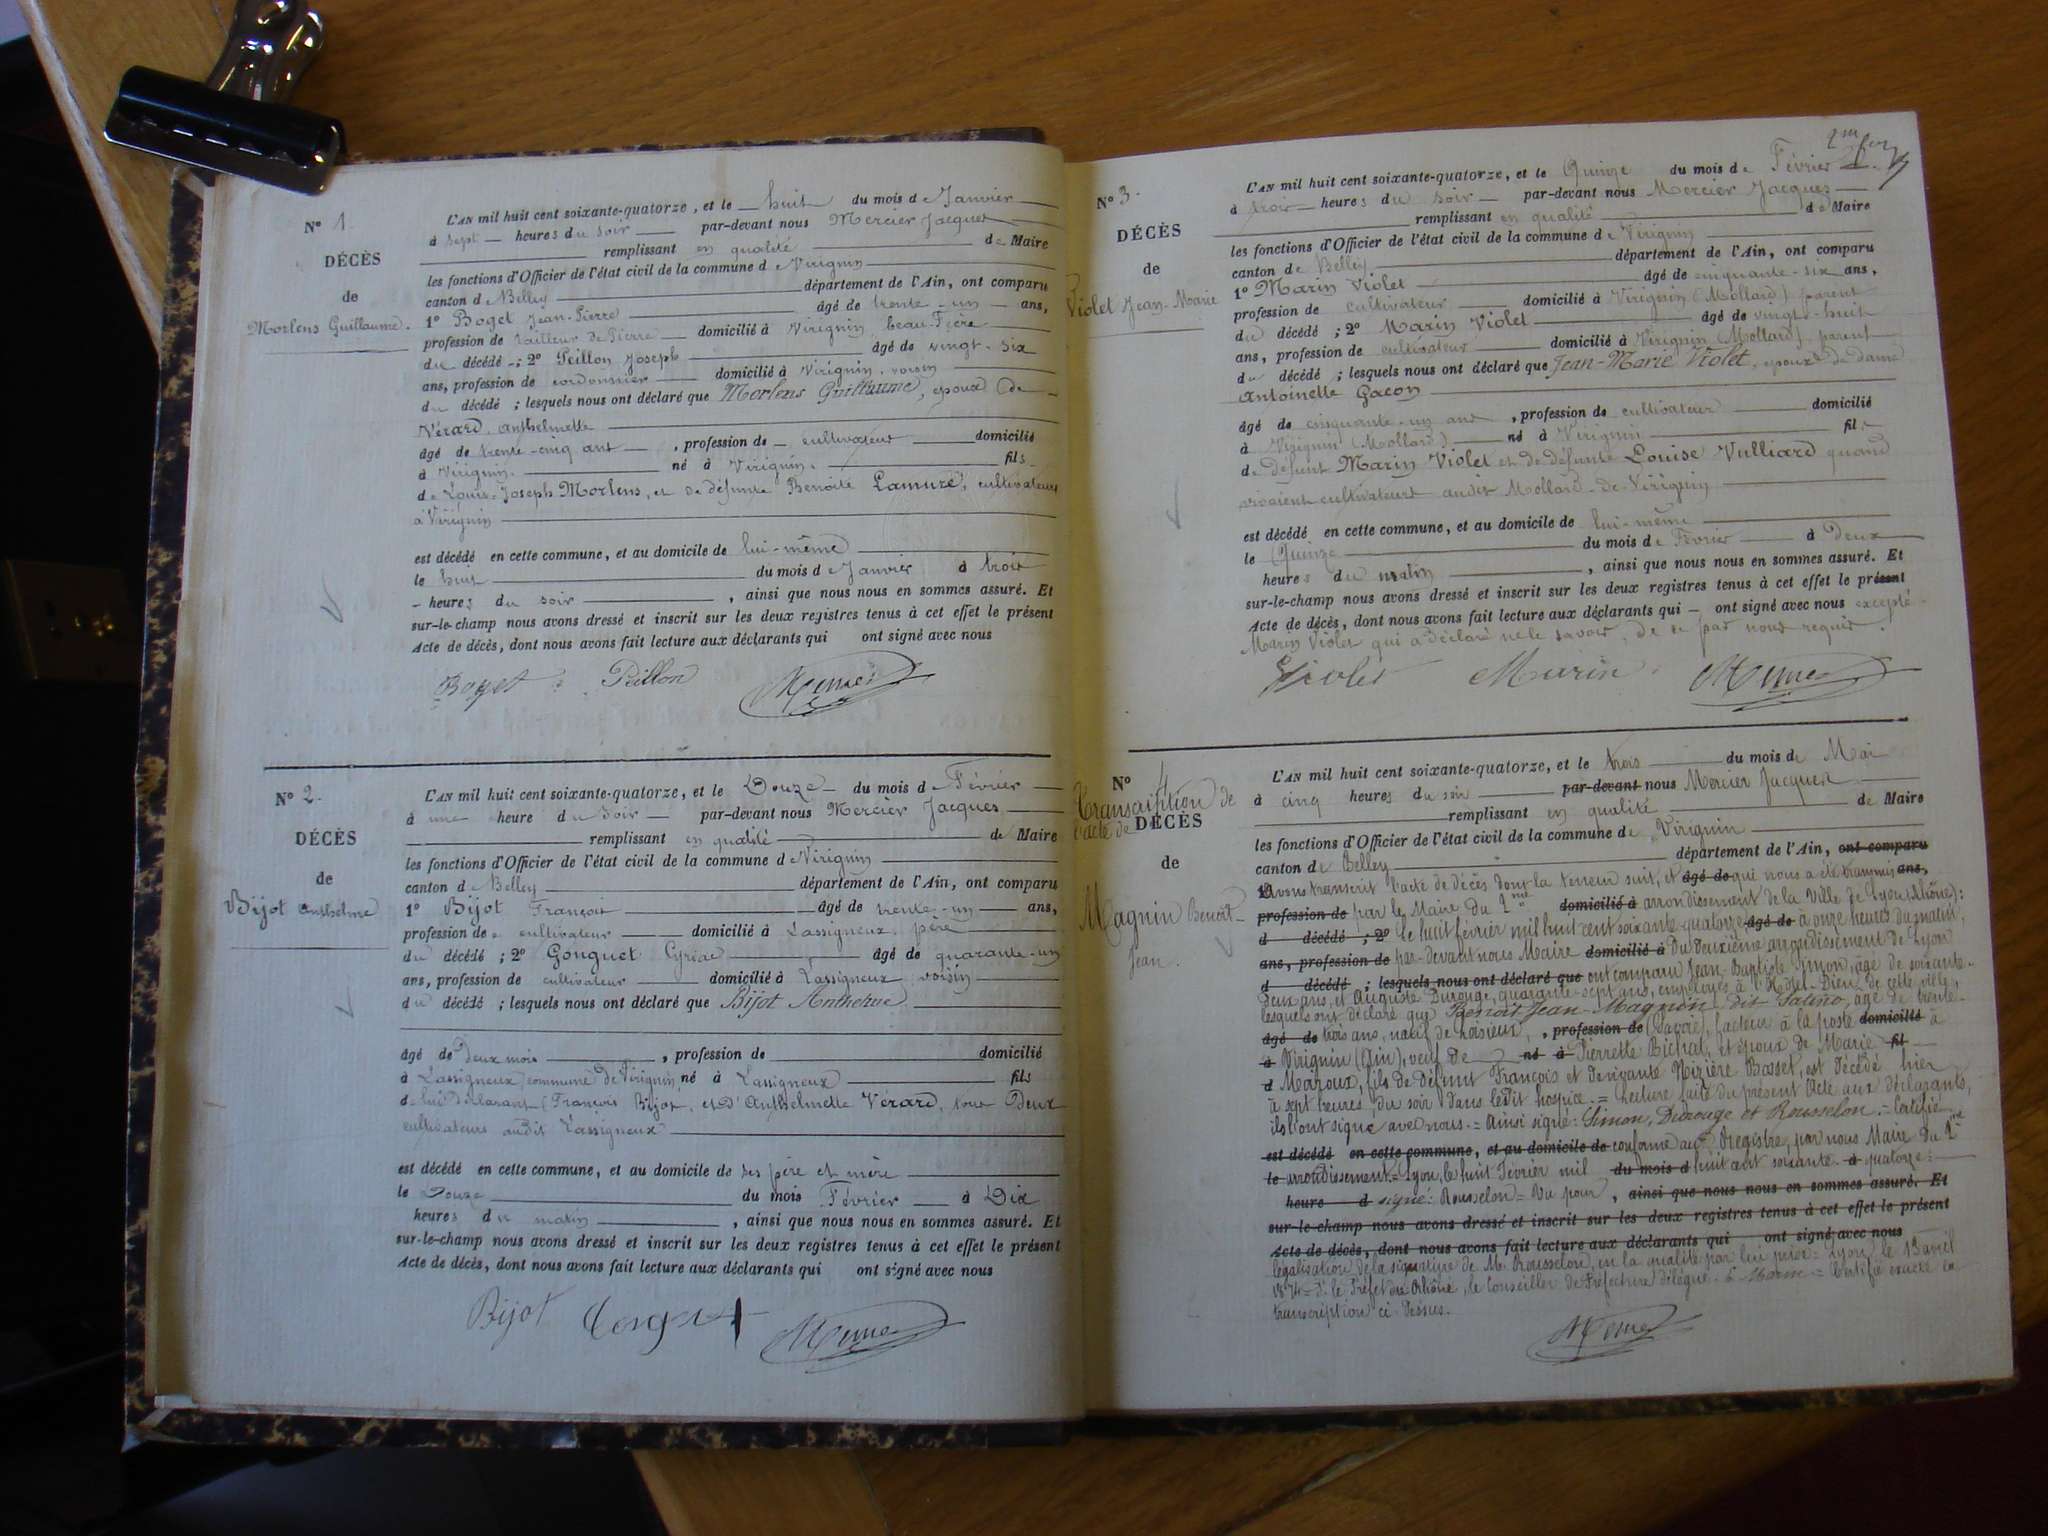 N° 1.
DÉCÈS
de
Morlens Guillaume.
L'AN mil huit cent soixante-quatorze, et le huit du mois de Janvier
à sept heures du soir par-devant nous Mercier Jacques
remplissant en qualité de Maire
les fonctions d'Officier de l'état civil de la commune de Virignin
canton de Belley département de l'Ain, ont comparu
1° Boget Jean-Pierre âgé de trente-un ans,
profession de tailleur de Pierre domicilié à Virignin, beau-frère
du décédé ; 2° Peillon Joseph âgé de vingt-six
ans, profession de cordonnier domicilié à Virignin, voisin
du décédé ; lesquels nous ont déclaré que Morlens Guillaume, époux de
Vérard, Anthelmette
âgé de trente-cinq ans, profession de cultivateur domicilié
à Virignin. né à Virignin. fils
de Louis-Joseph Morlens, et de défunte Benoite Lamure, cultivateurs
à Virignin
est décédé en cette commune, et au domicile de lui-même
le huit du mois de Janvier à trois
heures du soir, ainsi que nous nous en sommes assuré. Et
sur-le-champ nous avons dressé et inscrit sur les deux registres tenus à cet effet le présent
Acte de décès, dont nous avons fait lecture aux déclarants qui ont signé avec nous
Boget Peillon
N° 2.
DÉCÈS
de
Bijot Anthelme
L'AN mil huit cent soixante-quatorze, et le Douze du mois d Février
à une heure du soir par-devant nous Mercier Jacques
remplissant en qualité de Maire
les fonctions d'Officier de l'état civil de la commune de Virignin
canton de Belley département de l'Ain, ont comparu
1° Bijot François âgé de trente-un ans,
profession de cultivateur domicilié à Lassigneux, père
du décédé ; 2° Gonguet Cyriac âgé de quarante-un
ans, profession de cultivateur domicilié à Lassigneux, voisin
du décédé ; lesquels nous ont déclaré que Bijot Anthelme
âgé de Deux mois, profession de domicilié
à Lassigneux, commune de Virignin né à Lassigneux fils
de lui déclarant (François Bijot, et d'Anthelmette Vérard, tous Deux
cultivateurs audit Lassigneux
est décédé en cette commune, et au domicile de ses père et mère
le Douze du mois Février à Dix
heures du matin, ainsi que nous nous en sommes assuré. Et
sur-le-champ nous avons dressé et inscrit sur les deux registres tenus à cet effet le présent
Acte de décès, dont nous avons fait lecture aux déclarants qui ont signé avec nous
Bijot
N° 3.
DÉCÈS
de
Violet Jean-Marie
L'AN mil huit cent soixante-quatorze, et le Quinze du mois de Février
à trois heures du soir par-devant nous Mercier Jacques
remplissant en qualité de Maire
les fonctions d'Officier de l'état civil de la commune de Virignin
canton de Belley département de l'Ain, ont comparu
1° Marin Violet âgé de cinquante-six ans,
profession de cultivateur domicilié à Virignin (Mollard) parent
du décédé ; 2° Marin Violet âgé de vingt-huit
ans, profession de cultivateur domicilié à Virignin (Mollard) parent
du décédé ; lesquels nous ont déclaré que Jean-Marie Violet, époux de dame
Antoinette Gacon
âgé de cinquante-un ans, profession de cultivateur domicilié
à Virignin (Mollard) né à Virignin fils
de défunt Marin Violet et de défunte Louise Vulliard quand
vivaient cultivateurs audit Mollard-de-Virignin
est décédé en cette commune, et au domicile de lui-même
le Quinze du mois de Février à Deux
heures du matin, ainsi que nous nous en sommes assuré. Et
sur-le-champ nous avons dressé et inscrit sur les deux registres tenus à cet effet le présent
Acte de décès, dont nous avons fait lecture aux déclarants qui ont signé avec nous excepté
Marin Violet qui a déclaré ne le savoir, de ce par nous requis.
Violet Marin
N° 4
Transcription de
l'acte de DÉCÈS
de
Magnin Benoit-
Jean.
L'AN mil huit cent soixante-quatorze, et le trois du mois de Mai
à cinq heures du soir par-devant nous Mercier Jacques
remplissant en qualité de Maire
les fonctions d'Officier de l'état civil de la commune de Virignin
canton de Belley département de l'Ain, ont comparu
Avons transcrit l'acte de décès dont la teneur suit, et âgé de qui nous a été transmis ans,
profession de par le Maire du 2me domicilié à arrondissement de la Ville de Lyon (Rhône):
d décédé ; 2° Le huit février mil huit cent soixante-quatorze âgé de à onze heures du matin
ans, profession de par-devant nous Maire domicilié à Du deuxième arrondissement de Lyon
d décédé ; lesquels nous ont déclaré que ont comparu Jean-Baptiste Simon, âgé de soixante-
deux ans, et Auguste Durouge, quarante-sept ans, employés à l'Hôtel-Dieu de cette ville,
lesquels ont déclaré que Benoit Jean Magnin dit Salino, âgé de trente-
âgé de trois ans, natif de Loisieux, , profession de (Savoie), facteur à la poste domicilié à
à Virignin (Ain), veuf de né à Pierrette Bichat, et époux de Marie fil
d Maroux, fils de défunt François et de vivante Nizière Basset, est décédé hier
à sept heures du soir dans ledit hospice. = Lecture faite du présent Acte aux déclarants,
ils l'ont signé avec nous. = Ainsi signé: Simon, Durouge et Rousselon. = Certifié
est décédé en cette commune, et au domicile de conforme au Registre, par nous Maire du 2me
le arrondissement = Lyon, le huit Février mil du mois d huit cent soixante- à quatorze:
heure d signé: Rousselon = Vu pour, ainsi que nous nous en sommes assuré. Et
sur-le-champ nous avons dressé et inscrit sur les deux registres tenus à cet effet le présent
Acte de décès, dont nous avons fait lecture aux déclarants qui ont signé avec nous
légalisation de la signature de M. Rousselon, en la qualité par lui prise = Lyon, le 13 avril
1874 = Pr. le Préfet du Rhône, le Conseiller de Préfecture délégué. = Certifié exacte la
transcription ci-dessus.